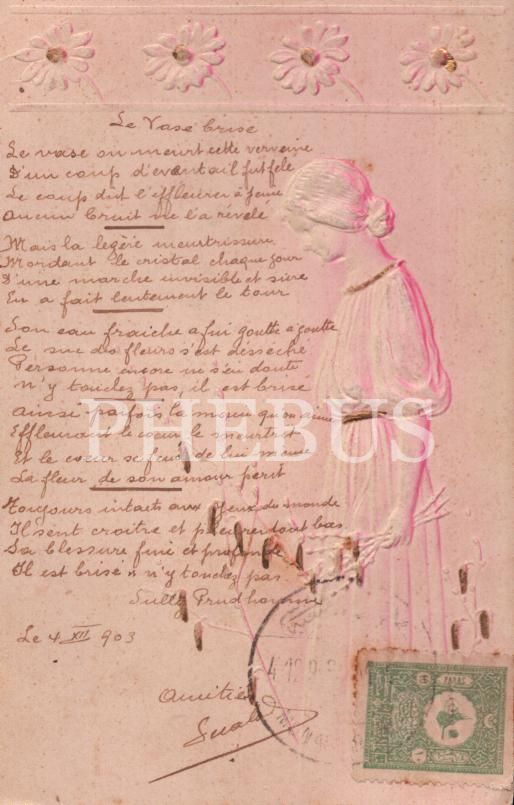 Le Vase brise
Le vase ou meurt cette verveine
D'un coup d'evantail fut fele
Le coup dut l'effleurer a peine
aucun bruit ne l'a révele
Mais la legère meurtrissure
Mordant le cristal chaque jour
D'une marche invisible et sure
En a fait lentement le tour
Son eau fraiche a fui goutte a goutte
Le suc des fleurs s'est desséché
Personne encore ne s'en doute
n'y touchez pas, il est brisé
ainsi parfois la main qu'on aime
Effleurant le coeur le meurtrit
Et le coeur se fend de lui meme
La fleur de son amour perit
Toujours intacts aux yeux du monde
Il sent croitre et pleurer tout bas
Sa blessure fine et profonde
Il est brisé n'y touchez pas
Sully Prudhomme
Le 4 XII 903
Amitiés
PHEBUS
4 12
PARAS
10